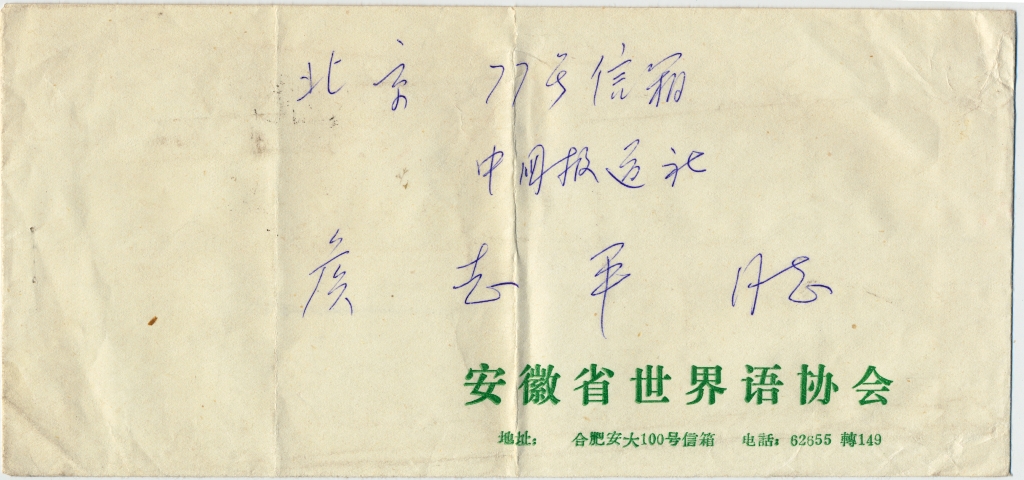 北京 77号信箱
中国报道社
侯志平 同志
安徽省世界语协会
地址： 合肥安大100号信箱 电話：62855 轉149